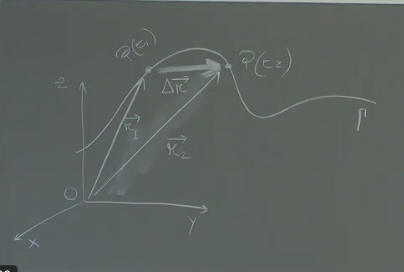 P(t₁)
P(t₂)
Z
Δr⃗
r⃗₁
r⃗₂
Γ
O
Y
X